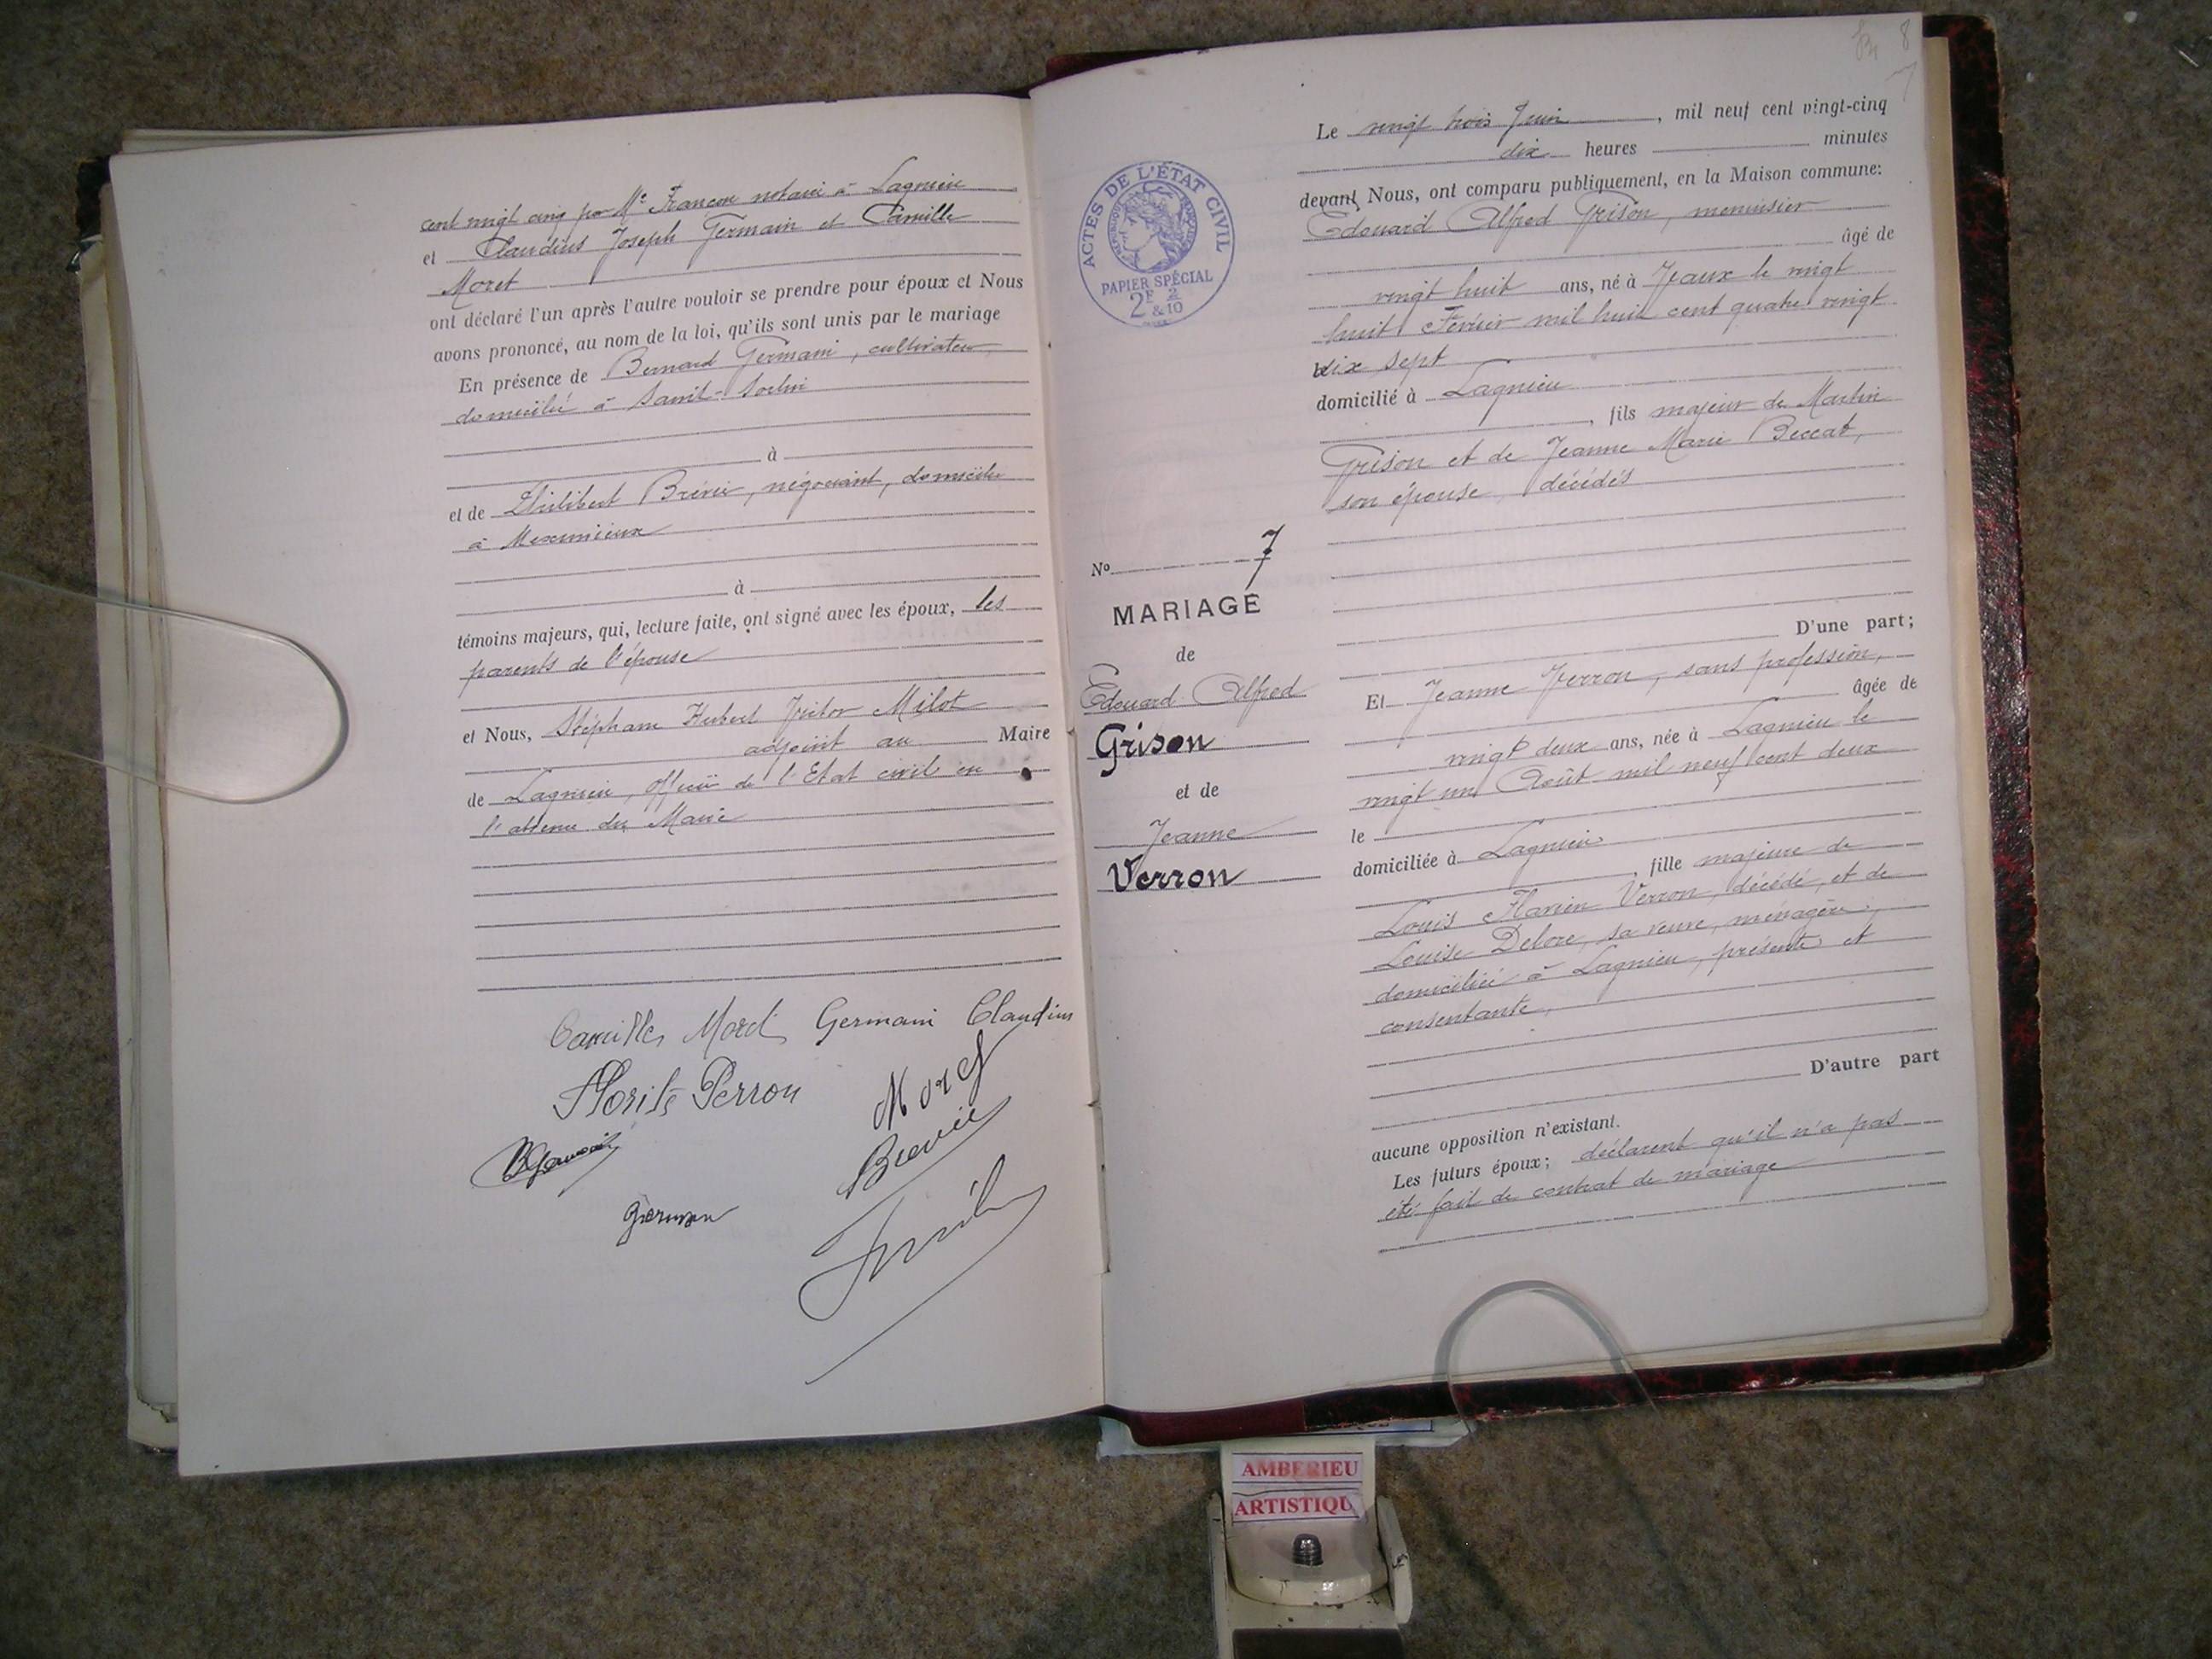 cent vingt cinq par Me Francon notaire à Lagnieu
et Claudius Joseph Germain et Camille
Moret
ont déclaré l'un après l'autre vouloir se prendre pour époux et Nous
avons prononcé, au nom de la loi, qu'ils sont unis par le mariage
En présence de Bernard Germain, cultivateur
domicilié à Saint-Sorlin
à
et de Philibert Brévie, négociant, domicilié
à Meximieux
à
témoins majeurs, qui, lecture faite, ont signé avec les époux, les
parents de l'épouse
et Nous, Stéphane Hubert Victor Milot
adjoint au Maire
de Lagnieu, officier de l'Etat civil en
l'absence du Maire
Camille Moret Germain Claudius
Perron Moret
BGermain Brevie
Germain
8
Le vingt trois Juin, mil neuf cent vingt-cinq
dix heures minutes
devant Nous, ont comparu publiquement, en la Maison commune:
Edouard Alfred Grison, menuisier
âgé de
vingt huit ans, né à Vaux le vingt
huit Février mil huit cent quatre vingt
dix sept
domicilié à Lagnieu
, fils majeur de Martin
Grison et de Jeanne Marie Beccat,
son épouse, décédés
D'une part;
Et Jeanne Verron, sans profession,
âgée de
vingt deux ans, née à Lagnieu le
vingt un Août mil neuf cent deux
le
domiciliée à Lagnieu
, fille majeure de
Louis Verron, décédé, et de
Louise Delore, sa veuve, ménagère,
domiciliée à Lagnieu, présente et
consentante,
D'autre part
aucune opposition n'existant.
Les futurs époux; déclarent qu'il n'a pas
été fait de contrat de mariage
ACTES DE L'ÉTAT CIVIL
RÉPUBLIQUE FRANÇAISE
PAPIER SPÉCIAL
2F & 2/10
No 7
MARIAGE
de
Edouard Alfred
Grison
et de
Jeanne
Verron
AMBERIEU
ARTISTIQU